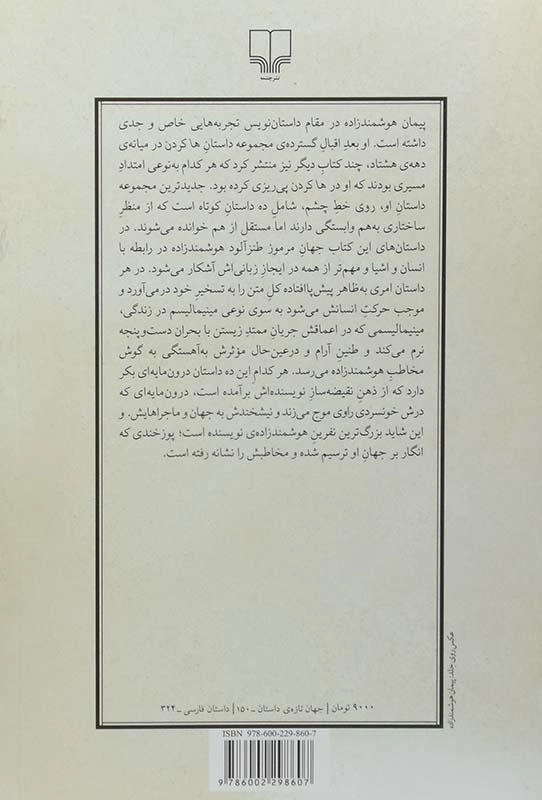 نشرچشمه
پیمان هوشمندزاده در مقام داستان‌نویس تجربه‌هایی خاص و جدی
داشته است. او بعدِ اقبالِ گسترده‌ی مجموعه داستانِ ها کردن در میانه‌ی
دهه‌ی هشتاد، چند کتابِ دیگر نیز منتشر کرد که هر کدام به‌نوعی امتدادِ
مسیری بودند که او در ها کردن پی‌ریزی کرده بود. جدیدترین مجموعه
داستانِ او، روی خطِ چشم، شاملِ ده داستانِ کوتاه است که از منظرِ
ساختاری به‌هم وابستگی دارند اما مستقل از هم خوانده می‌شوند. در
داستان‌های این کتاب جهانِ مرموزِ طنزآلودِ هوشمندزاده در رابطه با
انسان و اشیا و مهم‌تر از همه در ایجازِ زبانی‌اش آشکار می‌شود. در هر
داستان امری به‌ظاهر پیش‌پاافتاده کلِ متن را به تسخیرِ خود درمی‌آورد و
موجب حرکتِ انسانش می‌شود به سوی نوعی مینیمالیسم در زندگی،
مینیمالیسمی که در اعماقش جریانِ ممتدِ زیستن با بحران دست‌وپنجه
نرم می‌کند و طنینِ آرام و درعین‌حال مؤثرش به‌آهستگی به گوش
مخاطبِ هوشمندزاده می‌رسد. هر کدام از این ده داستان درون‌مایه‌ای بکر
دارد که از ذهنِ نقیضه‌سازِ نویسنده‌اش برآمده است، درون‌مایه‌ای که
درش خونسردی راوی موج می‌زند و نیشخندش به جهان و ماجراهایش. و
این شاید بزرگ‌ترین نفرینِ هوشمندزاده‌ی نویسنده است؛ پوزخندی که
انگار بر جهانِ او ترسیم شده و مخاطبش را نشانه رفته است.
عکس روی جلد: پیمان هوشمندزاده
۹۰۰۰ تومان | جهان تازه‌ی داستان ـ ۱۵۰ | داستان فارسی ـ ۳۲۲
ISBN 978-600-229-860-7
9 786002 298607